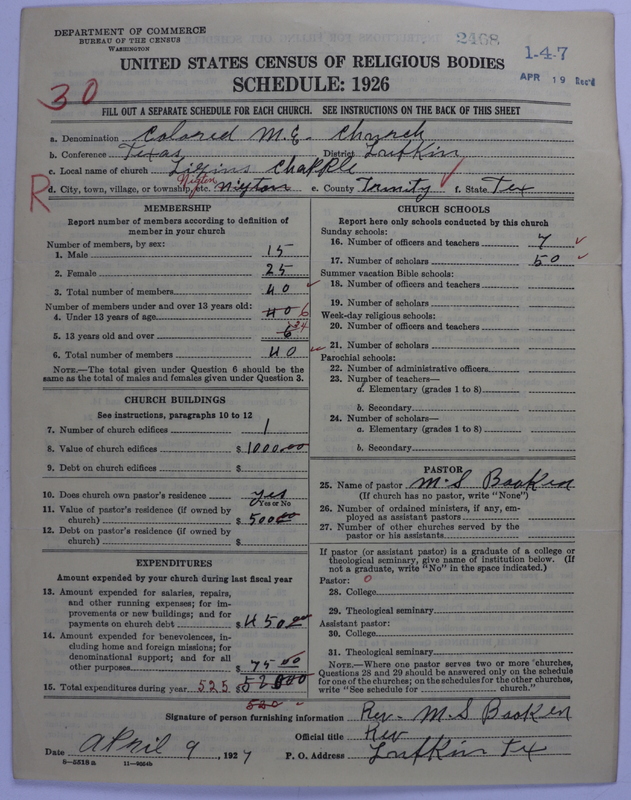 DEPARTMENT OF COMMERCE
BUREAU OF THE CENSUS
WASHINGTON
2468
1-4-7
APR 19 Rec'd
UNITED STATES CENSUS OF RELIGIOUS BODIES
SCHEDULE: 1926
30
FILL OUT A SEPARATE SCHEDULE FOR EACH CHURCH. SEE INSTRUCTIONS ON THE BACK OF THIS SHEET
a. Denomination Colored M.E. Church
b. Conference Texas District Lufkin
c. Local name of church Chapple
Nigton
R d. City, town, village, or township, etc. Nigton e. County Trinity f. State Tex
MEMBERSHIP
Report number of members according to definition of member in your church
Number of members, by sex:
1. Male 15
2. Female 25
3. Total number of members 40
Number of members under and over 13 years old:
4. Under 13 years of age 40 6
5. 13 years old and over 6 34
6. Total number of members 40
NOTE.—The total given under Question 6 should be the same as the total of males and females given under Question 3.
CHURCH BUILDINGS
See instructions, paragraphs 10 to 12
7. Number of church edifices 1
8. Value of church edifices $ 1000.00
9. Debt on church edifices $
10. Does church own pastor's residence yes
Yes or No
11. Value of pastor's residence (if owned by church) $ 500.00
12. Debt on pastor's residence (if owned by church) $
EXPENDITURES
Amount expended by your church during last fiscal year
13. Amount expended for salaries, repairs, and other running expenses; for improvements or new buildings; and for payments on church debt $ 450.00
14. Amount expended for benevolences, including home and foreign missions; for denominational support; and for all other purposes $ 75.00
15. Total expenditures during year 525 $
CHURCH SCHOOLS
Report here only schools conducted by this church
Sunday schools:
16. Number of officers and teachers 7
17. Number of scholars 50
Summer vacation Bible schools:
18. Number of officers and teachers
19. Number of scholars
Week-day religious schools:
20. Number of officers and teachers
21. Number of scholars
Parochial schools:
22. Number of administrative officers
23. Number of teachers—
a. Elementary (grades 1 to 8)
b. Secondary
24. Number of scholars—
a. Elementary (grades 1 to 8)
b. Secondary
PASTOR
25. Name of pastor M.S Booken
(If church has no pastor, write "None")
26. Number of ordained ministers, if any, employed as assistant pastors
27. Number of other churches served by the pastor or his assistants
If pastor (or assistant pastor) is a graduate of a college or theological seminary, give name of institution below. (If not a graduate, write "No" in the space indicated.)
Pastor: 0
28. College
29. Theological seminary
Assistant pastor:
30. College
31. Theological seminary
NOTE.—Where one pastor serves two or more churches, Questions 28 and 29 should be answered only on the schedule for one of the churches; on the schedules for the other churches, write "See schedule for church."
Signature of person furnishing information Rev. M.S Booken
Official title Rev
Date April 9, 1927 P. O. Address Lufkin Tex
8-5518 a 11-9664b